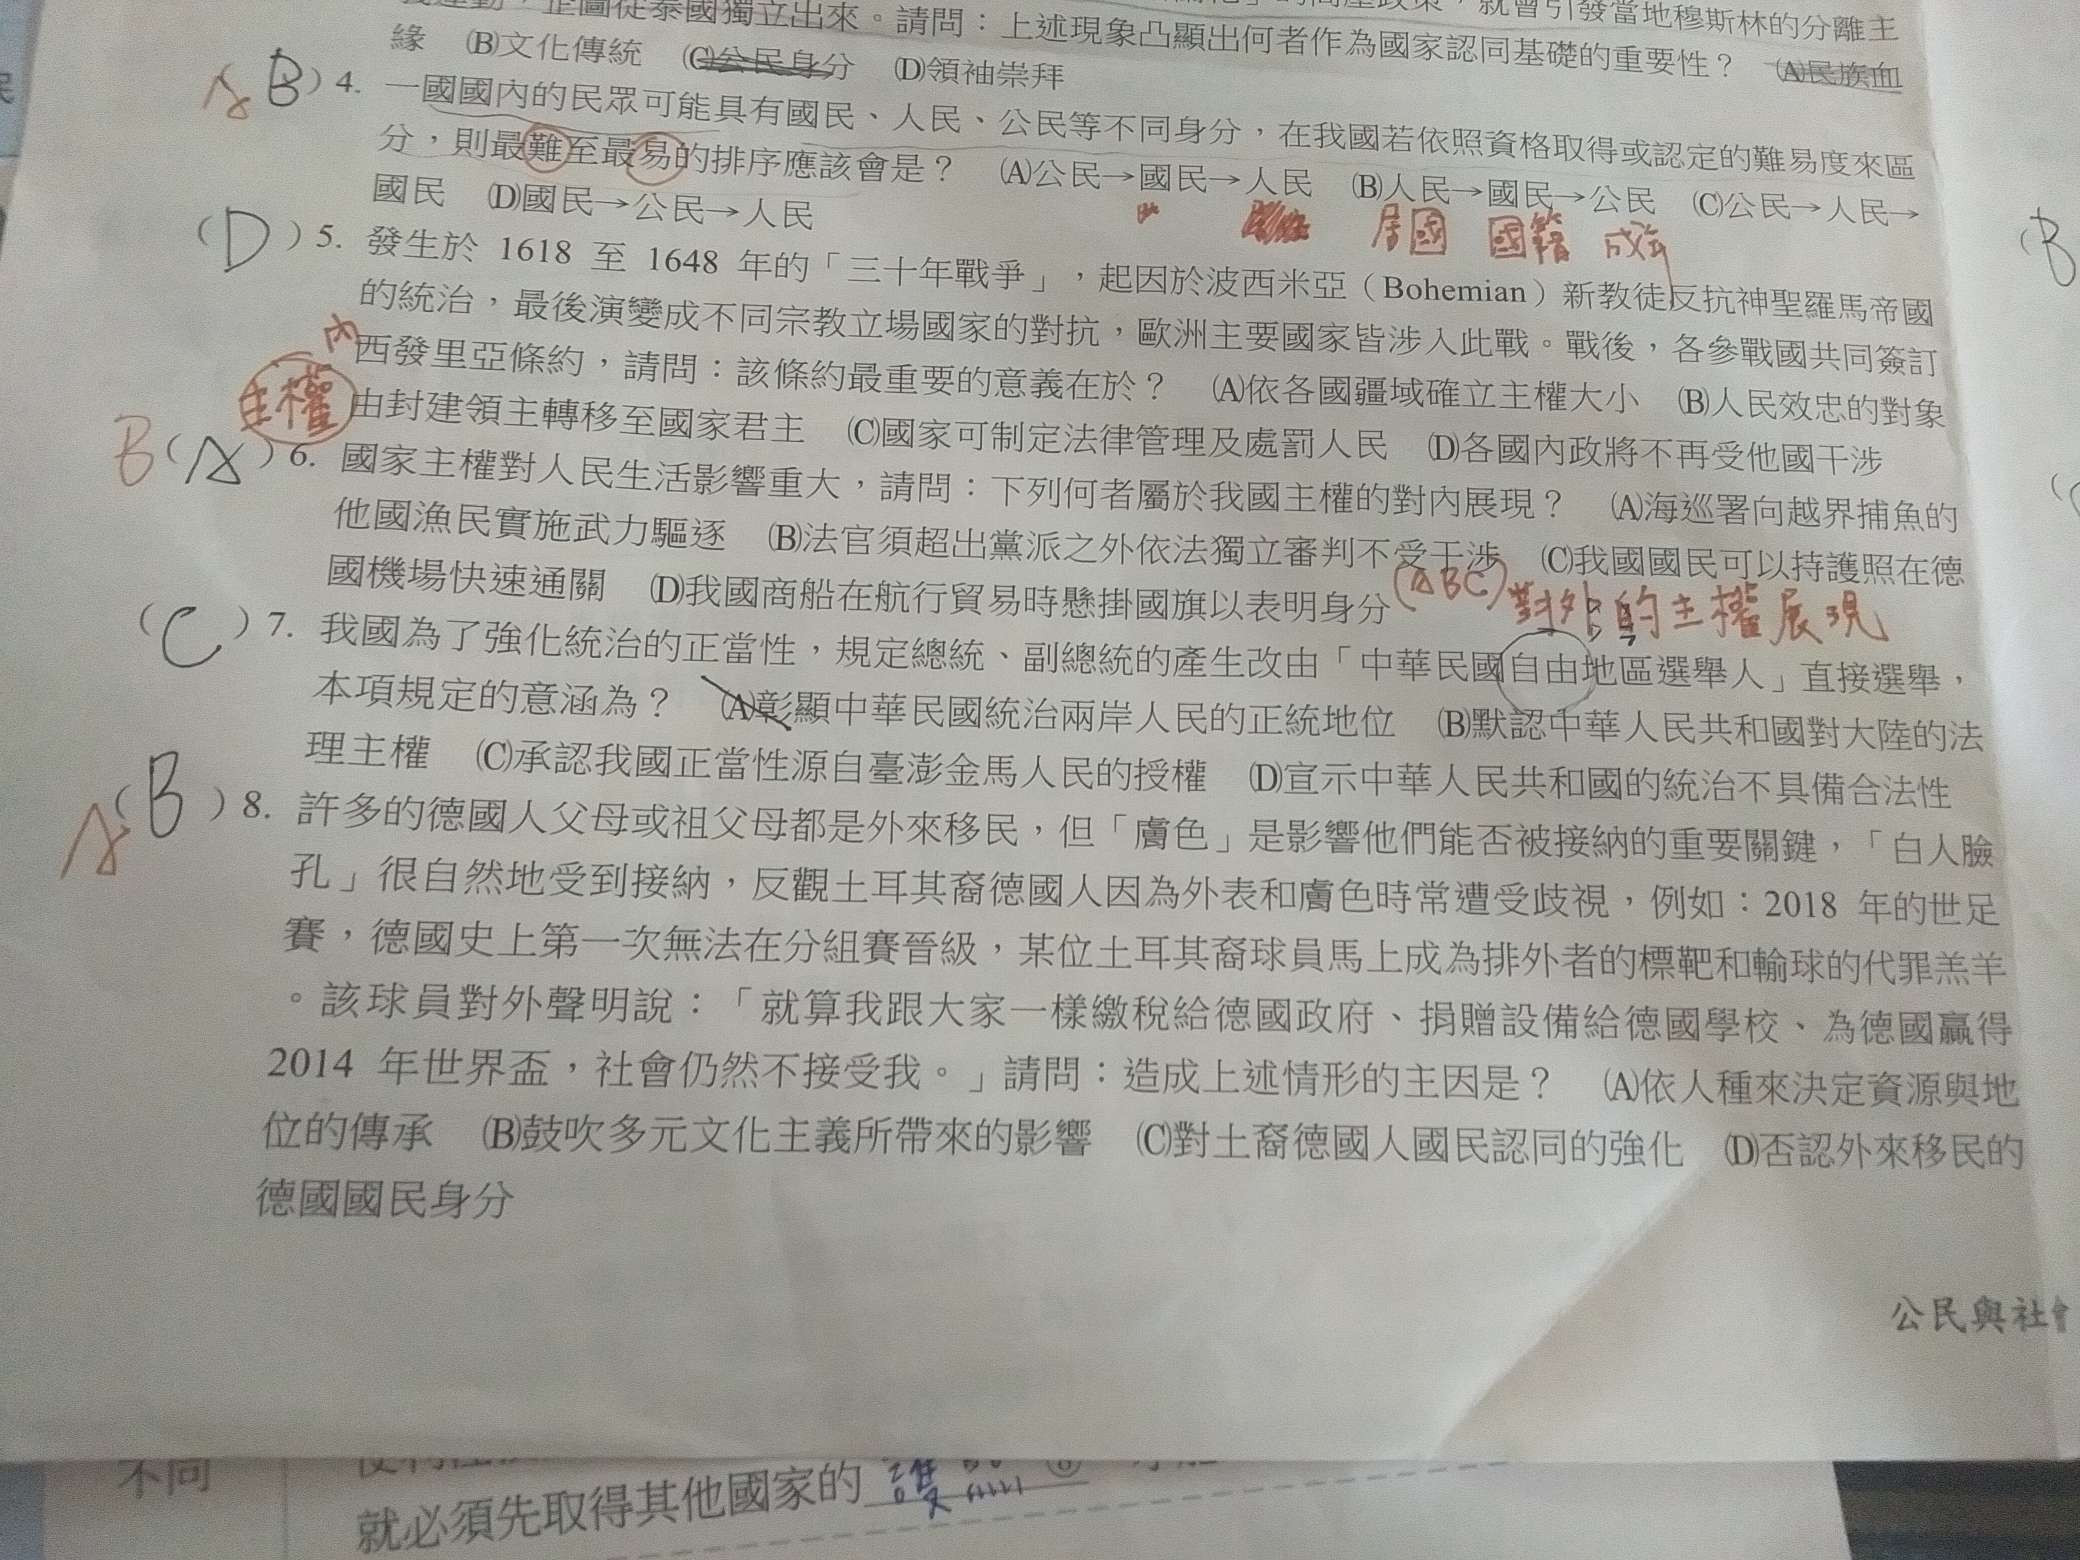 義運動，企圖從泰國獨立出來。請問：上述現象凸顯出何者作為國家認同基礎的重要性？ (A)民族血
緣 (B)文化傳統 (C)公民身分 (D)領袖崇拜
A (B) 4. 一國國內的民眾可能具有國民、人民、公民等不同身分，在我國若依照資格取得或認定的難易度來區
分，則最難至最易的排序應該會是？ (A)公民→國民→人民 (B)人民→國民→公民 (C)公民→人民→
國民 (D)國民→公民→人民
居國 國籍
(D) 5. 發生於 1618 至 1648 年的「三十年戰爭」，起因於波西米亞（Bohemian）新教徒反抗神聖羅馬帝國
的統治，最後演變成不同宗教立場國家的對抗，歐洲主要國家皆涉入此戰。戰後，各參戰國共同簽訂
西發里亞條約，請問：該條約最重要的意義在於？ (A)依各國疆域確立主權大小 (B)人民效忠的對象
由封建領主轉移至國家君主 (C)國家可制定法律管理及處罰人民 (D)各國內政將不再受他國干涉
內
主權
B (A) 6. 國家主權對人民生活影響重大，請問：下列何者屬於我國主權的對內展現？ (A)海巡署向越界捕魚的
他國漁民實施武力驅逐 (B)法官須超出黨派之外依法獨立審判不受干涉 (C)我國國民可以持護照在德
國機場快速通關 (D)我國商船在航行貿易時懸掛國旗以表明身分
(ABC) 對外的主權展現
(C) 7. 我國為了強化統治的正當性，規定總統、副總統的產生改由「中華民國自由地區選舉人」直接選舉，
本項規定的意涵為？ (A)彰顯中華民國統治兩岸人民的正統地位 (B)默認中華人民共和國對大陸的法
理主權 (C)承認我國正當性源自臺澎金馬人民的授權 (D)宣示中華人民共和國的統治不具備合法性
A (B) 8. 許多的德國人父母或祖父母都是外來移民，但「膚色」是影響他們能否被接納的重要關鍵，「白人臉
孔」很自然地受到接納，反觀土耳其裔德國人因為外表和膚色時常遭受歧視，例如：2018 年的世足
賽，德國史上第一次無法在分組賽晉級，某位土耳其裔球員馬上成為排外者的標靶和輸球的代罪羔羊
。該球員對外聲明說：「就算我跟大家一樣繳稅給德國政府、捐贈設備給德國學校、為德國贏得
2014 年世界盃，社會仍然不接受我。」請問：造成上述情形的主因是？ (A)依人種來決定資源與地
位的傳承 (B)鼓吹多元文化主義所帶來的影響 (C)對土裔德國人國民認同的強化 (D)否認外來移民的
德國國民身分
公民與社會
不同
就必須先取得其他國家的護照